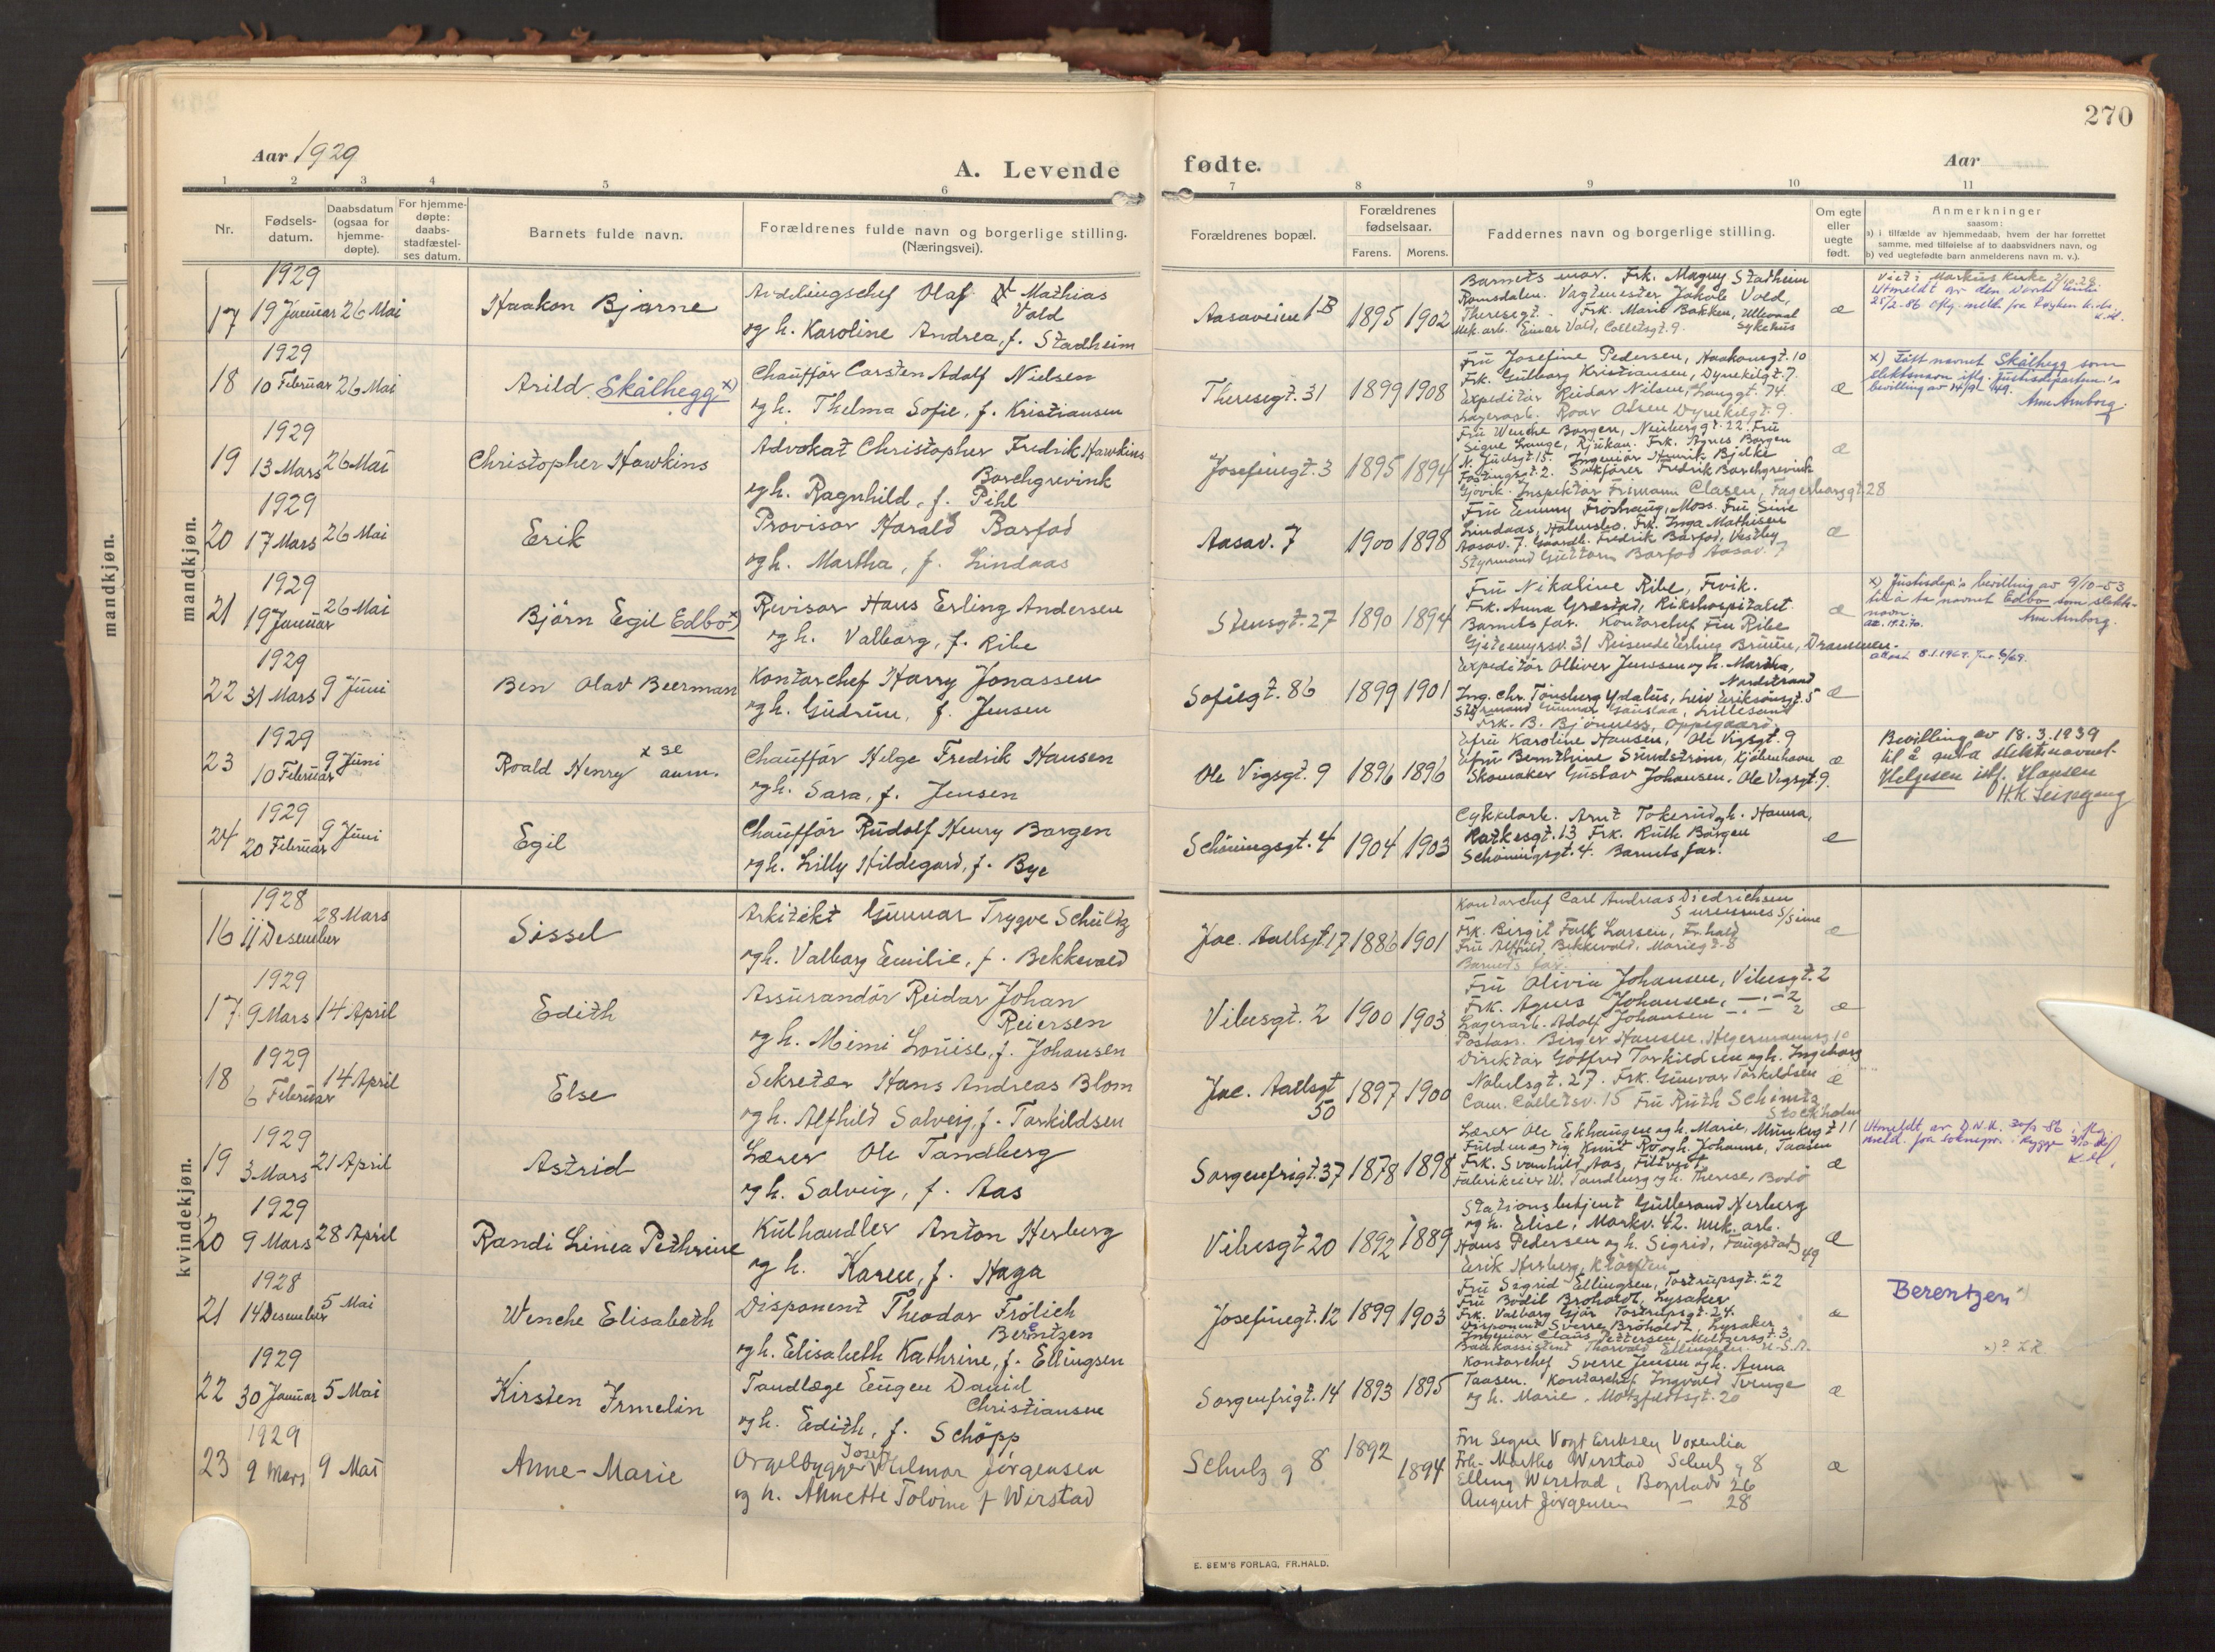 270
Aar 1929
A. Levende
fødte.
Aar
1 2 3 4 5 6 7 8 9 10 11
Nr.
Fødsels-
datum.
Daabsdatum
(ogsaa for
hjemme-
døpte).
For hjemme-
døpte:
daabs-
stadfæstel-
ses datum.
Barnets fulde navn.
Forældrenes fulde navn og borgerlige stilling.
(Næringsvei).
Forældrenes bopæl.
Forældrenes
fødselsaar.
Farens. Morens.
Faddernes navn og borgerlige stilling.
Om egte
eller
uegte
født.
Anmerkninger
saasom:
a) i tilfælde av hjemmedaab, hvem der har forrettet
samme, med tilføielse af to daabsvidners navn, og
b) ved uegtefødte barn anmelderens navn m. v.).
mandkjøn.
mandkjøn.
1929
17 19 Januar 26 Mai
Haakon Bjarne
Avdelingschef Olaf Mathias
Vold
og h. Karoline Andrea, f. Stadheim
Aasaveien 1B 1895 1902
Barnets mor. Frk. Magny Stadheim
Romsdalen. Vagtmester Jakob Vold,
Theresegt. Frk. Marie Bakken, Ullevaal
Mek. arb. Einar Vold, Colletsgt. 9. sykehus
æ
Viet i Markus kirke
Utmeldt av den norske kirke
1929
18 10 Februar 26 Mai
Arild Skålhegg x)
Chauffør Carsten Adolf Nielsen
og h. Thelma Sofie, f. Kristiansen
Theresegt. 31 1899 1908
Fru Josefine Pedersen, Haakonsgt. 10
Frk. Gulborg Kristiansen, Dynekilgt. 7.
Expeditør Reidar Nilsen, Langgt. 74.
Lagerarb. Roar Olsen Dynekilgt. 9.
æ
x) Født navnet Skålhegg som
slektsnavn iflg. Justisdepartem.'s
bevilling av 14/9 1949.
Arne Arnborg.
1929
19 13 Mars 26 Mai
Christopher Hawkins
Advokat Christopher Fredrik Hawkins
Borchgrevink
og h. Ragnhild, f. Pihl
Josefinegt. 3 1895 1894
Fru Wenche Borgen, Neuberggt. 22. Fru
Signe Lange, Rjukan. Frk. Agnes Borgen
N. Juelsgt. 15. Ingeniør Henrik Bjelke
Fastingsgt. 2. Sakfører Fredrik Borchgrevink
Gjøvik. Inspektør Frimann Clasen, Fagerborggt. 28
æ
1929
20 17 Mars 26 Mai
Erik
Provisor Harald Barfod
og h. Martha, f. Lindaas
Aasav. 7 1900 1898
Fru Emmy Frøshaug, Moss. Fru Sine
Lindaas, Holmsbo. Frk. Inga Mathisen
Aasav. 7. Gaardb. Fredrik Barfod, Vestby
Styrmand Guttorm Barfod Aasav. 7
æ
1929
21 19 Januar 26 Mai
Bjørn Egil Edbo x)
Revisor Hans Erling Andersen
og h. Valborg, f. Ribe
Stensgt. 27 1890 1894
Fru Nikoline Ribe, Frvik.
Frk. Anna Græstad, Rikshospitalet
Barnets far. Kontorchef Finn Ribe
Gjetemyrsv. 31 Reisende Erling Bruun, Drammen.
æ
x) Justisdep's bevilling av 9/10-53
til å ta navnet Edbo som slekts-
navn.
Arne Arnborg.
att. 19.2.70.
1929
22 31 Mars 9 Juni
Ben Olav Beerman
Kontorchef Harry Jonassen
og h. Gudrun, f. Jensen
Sofiegt. 86 1899 1901
Expeditør Olliver Jenssen og h. Martha,
Nordstrand
Ing. Chr. Tønsberg Ydalus, Leiv Eriksønsgt. 5
Styrmand Gunnar Gauslaa, Lillesand
Frk. B. Bjønness, Oppegaard
æ
1929
23 10 Februar 9 Juni
Roald Henry x se anm.
Chauffør Helge Fredrik Hansen
og h. Sara, f. Jensen
Ole Vigsgt. 9 1896 1896
Efru Karoline Hansen, Ole Vigsgt. 9
Efru Bernthine Sundstrøm, Kjøbenhavn
Skomaker Gustav Johansen, Ole Vigsgt. 9.
æ
Bevilling av 18.3.1939
til å anta slektsnavnet
Helgesen istf. Hansen
H.K. Leisegang
1929
24 20 Februar 9 Juni
Egil
Chauffør Rudolf Henry Borgen
og h. Lilly Hildegard, f. Bye
Schøningsgt. 4 1904 1903
Cykkelarb. Arnt Tokerud og h. Hanna,
Ratkesgt. 13 Frk. Ruth Borgen
Schøningsgt. 4. Barnets far.
æ
kvindekjøn.
1928
16 11 Desember 28 Mars
Sissel
Arkitekt Gunnar Trygve Schultz
og h. Valborg Emilie, f. Bekkevold
Jac. Aallsgt. 17 1886 1901
Kontorchef Carl Andreas Diedrichsen
Suresnes S/Seine
Frk. Birgit Falk Larsen, Fr.hald
Fru Alfhild Bekkevold, Mariegt. 8
Barnets far.
æ
1929
17 9 Mars 14 April
Edith
Assurandør Reidar Johan
Reiersen
og h. Mimi Louise, f. Johansen
Vibesgt. 2 1900 1903
Fru Olivia Johansen, Vibesgt. 2
Frk. Agnes Johansen, —.— 2
Lagerarb. Adolf Johansen —.— 2
Postass. Birger Hansen, Hegermannsg 10
æ
1929
18 6 Februar 14 April
Else
Sekretær Hans Andreas Blom
og h. Alfhild Solveig, f. Torkildsen
Jac. Aallsgt 50 1897 1900
Direktør Gotfred Torkildsen og h. Ingeborg
Nobelsgt. 27. Frk. Gunvor Torkildsen
Cam. Colletsv. 15 Fru Ruth Schimtz
Stockholm
æ
1929
19 3 Mars 21 April
Astrid
Lærer Ole Tandberg
og h. Solveig, f. Aas
Sorgenfrigt. 37 1878 1898
Lærer Ole Ekhaugen og h. Marie, Munkegt 11
Fuldmægtig Knut Rø og h. Johanne, Taasen
Frk. Svanhild Aas, Filtvet
Fabrikeier W. Tandberg og h. Therese, Bodø
æ
Utmeldt av D.N.K.
1929
20 9 Mars 28 April
Randi Linea Pethrine
Kulhandler Anton Herberg
og h. Karen, f. Haga
Vibesgt 20 1892 1889
Stationsbetjent Gulbrand Herberg
og h. Elise, Markv. 42. mek. arb.
Hans Pedersen og h. Sigrid, Faugstadg 49
Erik Herberg, Kløften
æ
1928
21 14 Desember 5 Mai
Wenche Elisabeth
Disponent Theodor Frølich
Berentzen
og h. Elisabeth Kathrine, f. Ellingsen
Josefinegt. 12 1899 1903
Fru Sigrid Ellingsen, Tostrupsgt. 22
Fru Bodil Broholdt, Lysaker
Frk. Valborg Gjør Tostrupsgt. 24.
Disponent Sverre Broholdt, Lysaker
Ingeniør Claus Pettersen, Meltzersgt. 3
Bankassistent Thorvald Ellingsen, U.S.A.
æ
Berentzen
1929
22 30 Januar 5 Mai
Kirsten Irmelin
Tandlæge Eugen David
Christiansen
og h. Edith, f. Schøpp
Sorgenfrigt. 14 1893 1895
Kontorchef Sverre Jensen og h. Anna
Taasen. Kontorchef Ingvald Tvenge
og h. Marie, Motzfeldtsgt. 20
æ
1929
23 9 Mars 9 Mai
Anne-Marie
Orgelbygger Josef Hilmar Jørgensen
og h. Annette Tolvine f Wirstad
Schulz g 8 1892 1894
Fru Signe Vogt Eriksen Voxenlia
Frk. Martha Wirstad Schulz g 8
Elling Wirstad, Bogstadv 26
August Jørgensen — 28
æ
E. SEM'S FORLAG, FR.HALD.